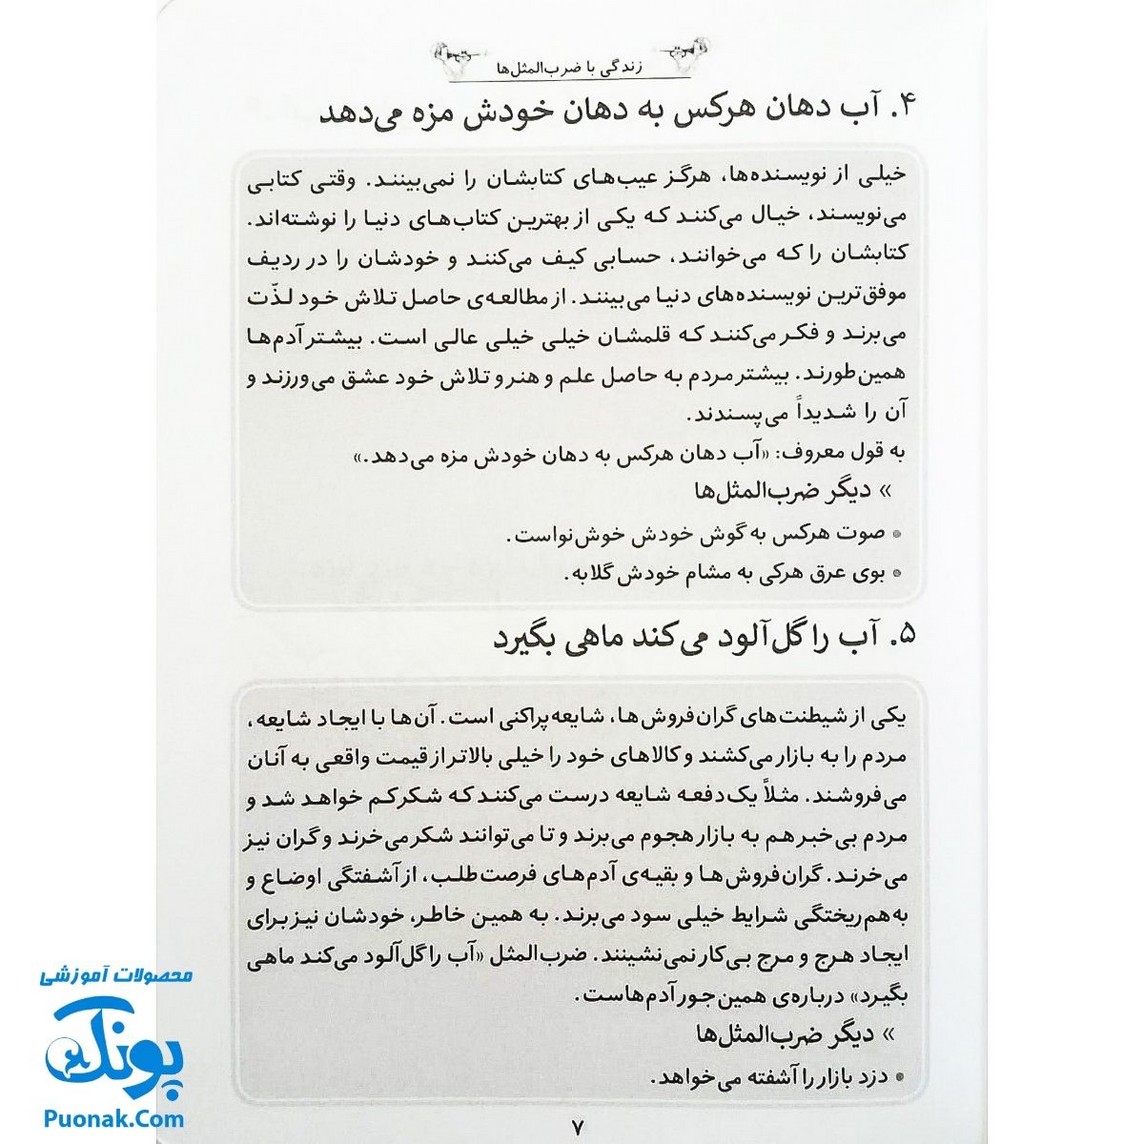 زندگی با ضرب‌المثل‌ها
۴. آب دهان هرکس به دهان خودش مزه می‌دهد
خیلی از نویسنده‌ها، هرگز عیب‌های کتابشان را نمی‌بینند. وقتی کتابی
می‌نویسند، خیال می‌کنند که یکی از بهترین کتاب‌های دنیا را نوشته‌اند.
کتابشان را که می‌خوانند، حسابی کیف می‌کنند و خودشان را در ردیف
موفق‌ترین نویسنده‌های دنیا می‌بینند. از مطالعه‌ی حاصل تلاش خود لذّت
می‌برند و فکر می‌کنند که قلمشان خیلی خیلی عالی است. بیشتر آدم‌ها
همین‌طورند. بیشتر مردم به حاصل علم و هنر و تلاش خود عشق می‌ورزند و
آن را شدیداً می‌پسندند.
به قول معروف: «آب دهان هرکس به دهان خودش مزه می‌دهد.»
» دیگر ضرب‌المثل‌ها
صوت هرکس به گوش خودش خوش‌نواست.
بوی عرق هرکی به مشام خودش گلابه.
۵. آب را گل‌آلود می‌کند ماهی بگیرد
یکی از شیطنت‌های گران‌فروش‌ها، شایعه‌پراکنی است. آن‌ها با ایجاد شایعه،
مردم را به بازار می‌کشند و کالاهای خود را خیلی بالاتر از قیمت واقعی به آنان
می‌فروشند. مثلاً یک‌دفعه شایعه درست می‌کنند که شکر کم خواهد شد و
مردم بی‌خبر هم به بازار هجوم می‌برند و تا می‌توانند شکر می‌خرند و گران نیز
می‌خرند. گران‌فروش‌ها و بقیه‌ی آدم‌های فرصت‌طلب، از آشفتگی اوضاع و
به‌هم‌ریختگی شرایط خیلی سود می‌برند. به همین خاطر، خودشان نیز برای
ایجاد هرج و مرج بی‌کار نمی‌نشینند. ضرب‌المثل «آب را گل‌آلود می‌کند ماهی
بگیرد» درباره‌ی همین‌جور آدم‌هاست.
» دیگر ضرب‌المثل‌ها
دزد بازار را آشفته می‌خواهد.
۷
محصولات آموزشی
پونک
Puonak.Com